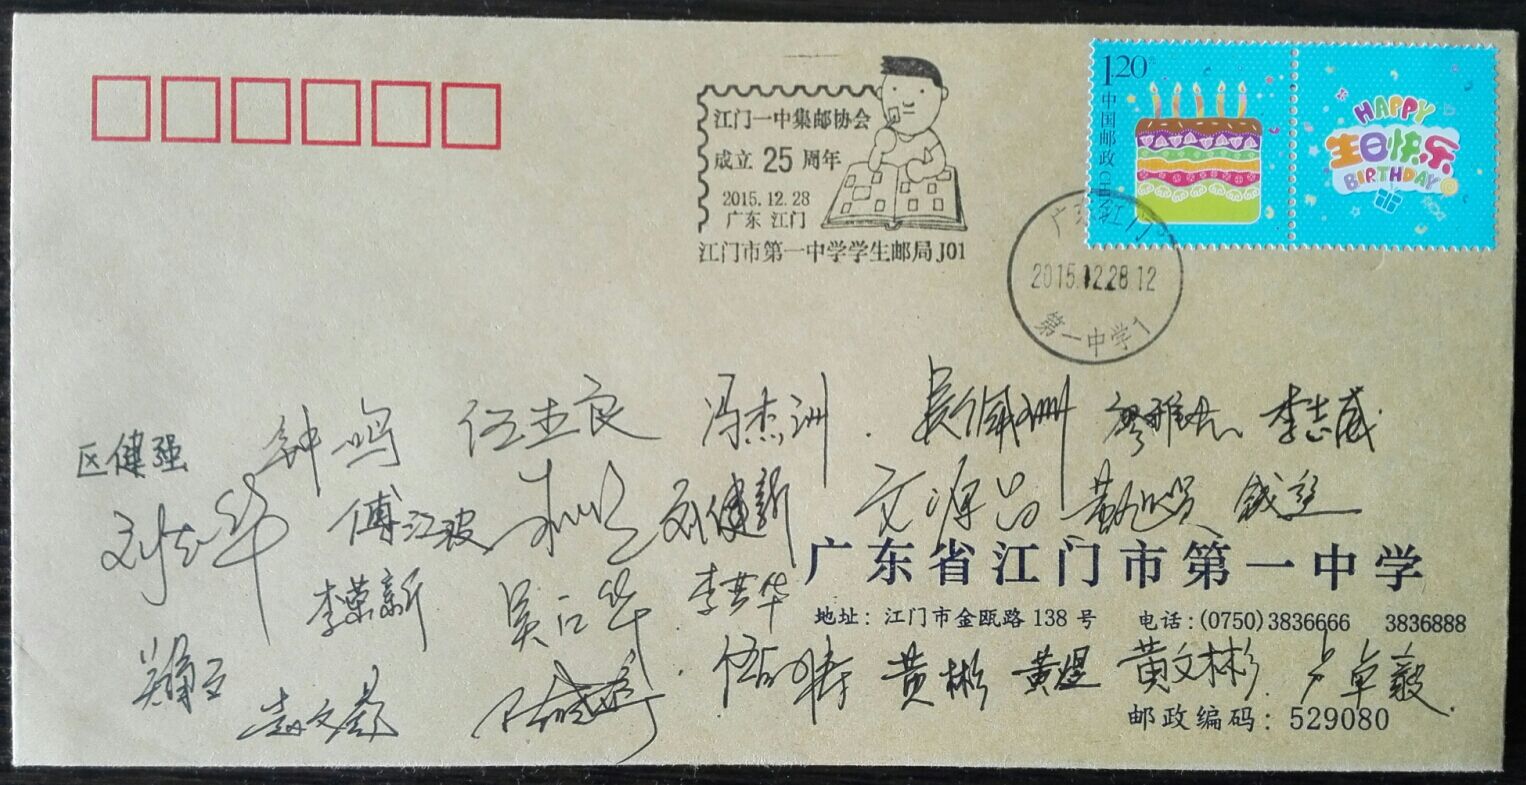 江门一中集邮协会
成立 25 周年
2015.12.28
广东 江门
江门市第一中学学生邮局J01
1.20元
中国邮政 CHINA
HAPPY
生日快乐
BIRTHDAY
广东江门
2015.12.28 12
第一中学1
区健强 钟鸣 伍杰良 冯杰洲 李志威
傅江波 刘健新 文源昌
广东省江门市第一中学
李荣新 吴江华 李共华
地址: 江门市金瓯路 138 号 电话:(0750)3836666 3836888
黄彬 黄煜 黄文彬 卢卓毅
邮政编码: 529080